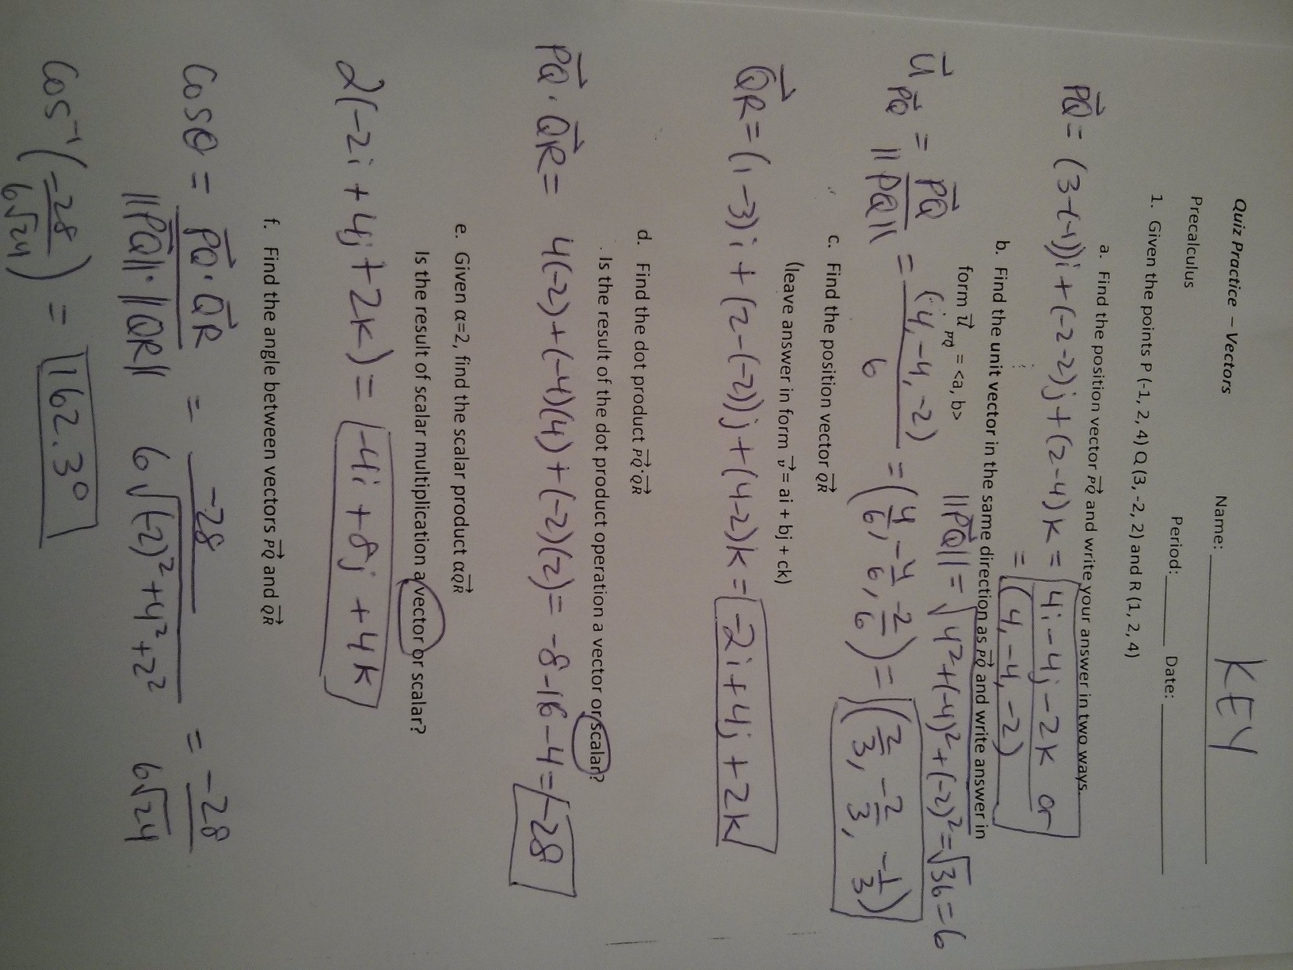 Quiz Practice – Vectors
Name: KEY
Precalculus
Period: Date:
1. Given the points P (-1, 2, 4) Q (3, -2, 2) and R (1, 2, 4)
a. Find the position vector PQ and write your answer in two ways.
PQ = (3-(-1))i + (-2-2)j + (2-4)k = 4i - 4j - 2k or
= (4, -4, -2)
b. Find the unit vector in the same direction as PQ and write answer in
form u PQ = <a, b>
||PQ|| = √4²+(-4)²+(-2)² = √36 = 6
u PQ = PQ / ||PQ|| = (4, -4, -2) / 6 = (4/6, -4/6, -2/6) = (2/3, -2/3, -1/3)
c. Find the position vector QR
(leave answer in form v = ai + bj + ck)
QR = (1-3)i + (2-(-2))j + (4-2)k = -2i + 4j + 2k
d. Find the dot product PQ·QR
Is the result of the dot product operation a vector or scalar?
PQ · QR = 4(-2) + (-4)(4) + (-2)(2) = -8 - 16 - 4 = -28
e. Given α=2, find the scalar product αQR
Is the result of scalar multiplication a vector or scalar?
2(-2i + 4j + 2k) = -4i + 8j + 4k
f. Find the angle between vectors PQ and QR
Cosθ = PQ · QR / ||PQ|| · ||QR|| = -28 / 6√(-2)²+4²+2² = -28 / 6√24
Cos⁻¹(-28 / 6√24) = 162.3°